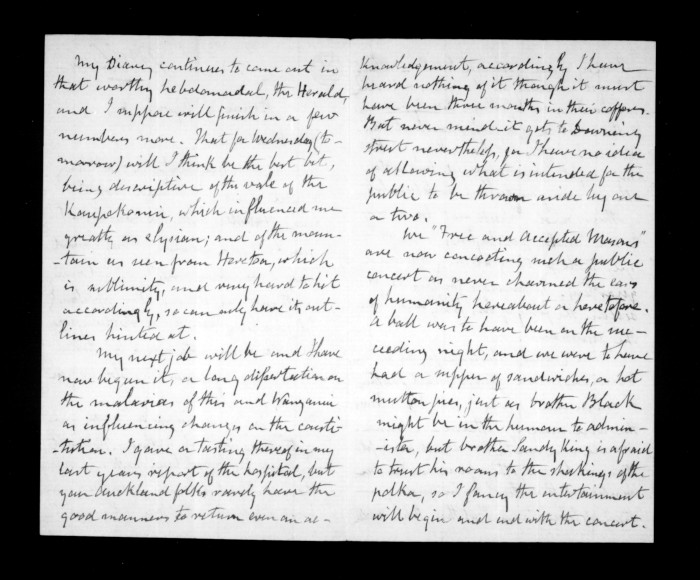 My Diary continues to come out in
that worthy hebdomadal, the Herald,
and I suppose will finish in a few
numbers more. That for Wednesday (to-
morrow) will I think be the best bit,
being descriptive of the vale of the
Kaupokonui, which influenced me
greatly as elysian; and of the moun-
-tain as seen from Hawera, which
is sublimity, and very hard to hit
accordingly, so can only have its out-
lines hinted at.
My next job will be and I have
now begun it, a long dissertation on
the malarias of this and Wanganui
as influencing changes on the consti-
-tution. I gave a tasting thereof in my
last years report of the hospital, but
your Auckland folks rarely have the
good manners to return even an ac-
knowledgement, accordingly I have
heard nothing of it though it must
have been three months in their coffers.
But never mind it gets to Downing
street nevertheless, for I have no idea
of allowing what is intended for the
public to be thrown aside by one
or two.
We "Free and Accepted Masons"
are now concocting such a public
concert as never charmed the ears
of humanity hereabout or heretofore.
A ball was to have been on the suc-
ceeding night, and we were to have
had a supper of sandwiches, or hot
mutton pies, just as brother Black
might be in the humour to admin-
-ister, but brother Sandy King is afraid
to trust his rooms to the shakings of the
polka, so I fancy the entertainment
will begin and end with the concert.